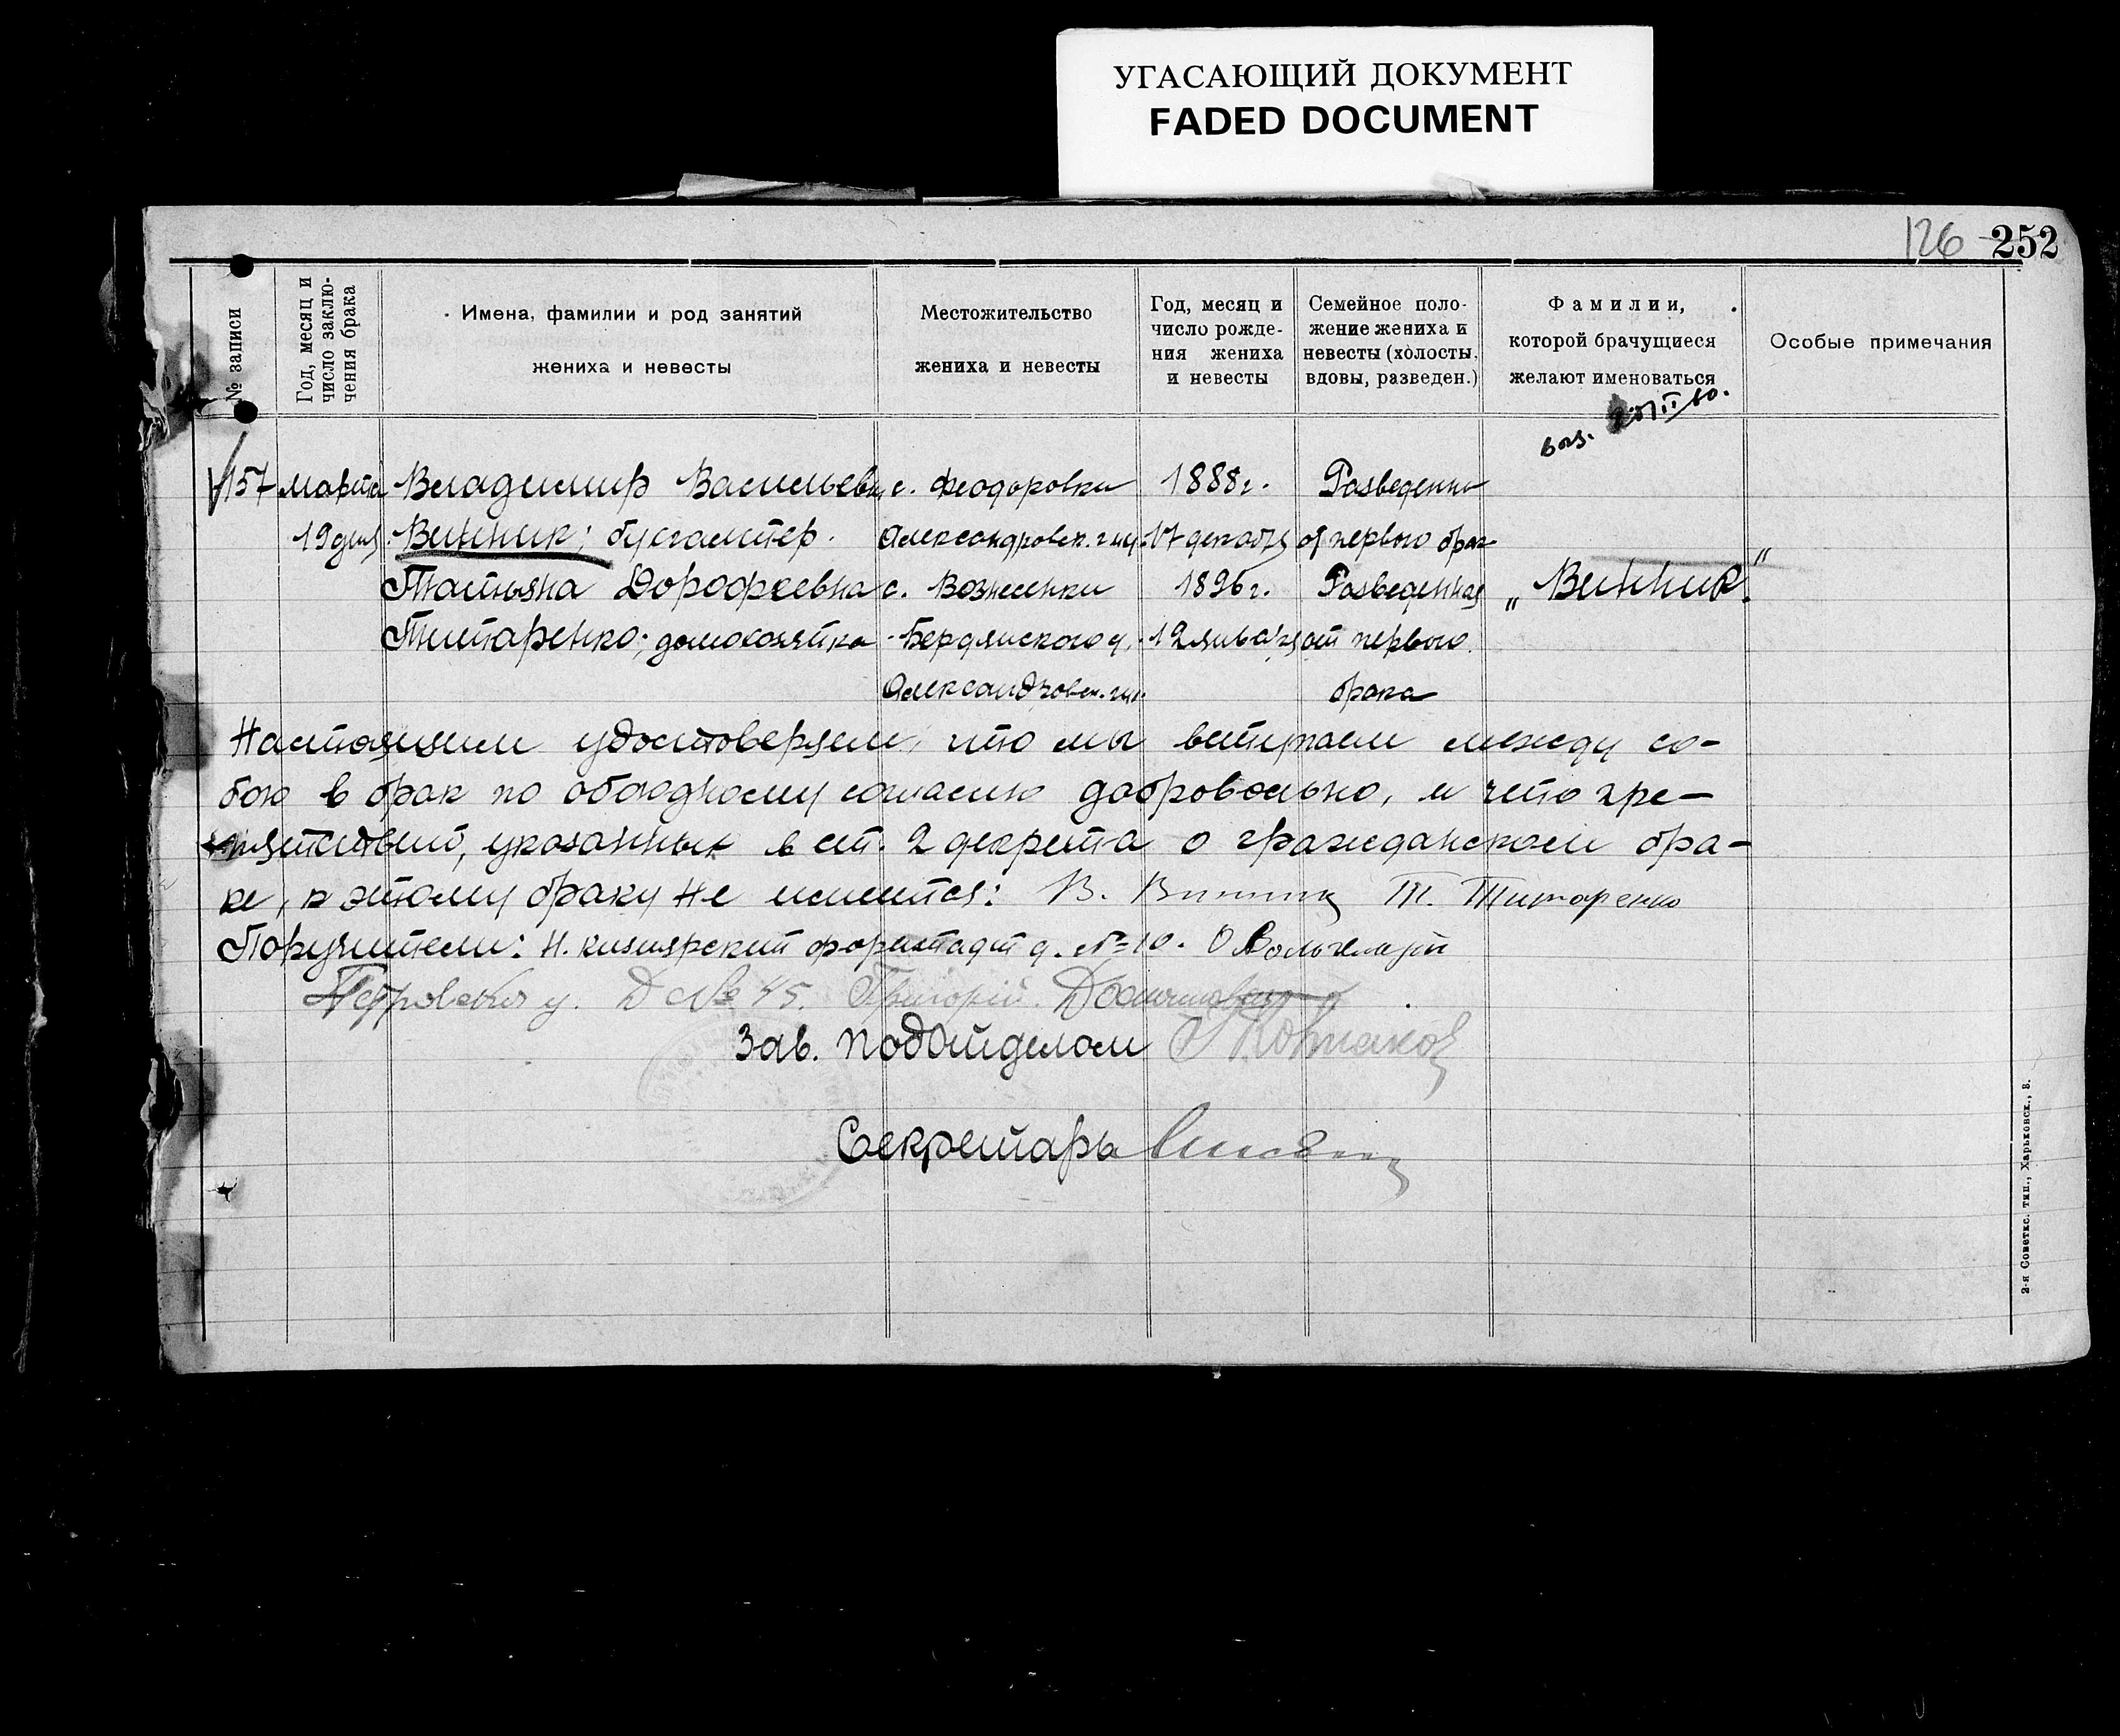 УГАСАЮЩИЙ ДОКУМЕНТ
FADED DOCUMENT
126 252
№ записи
Год, месяц и
число заклю-
чения брака
Имена, фамилии и род занятий
жениха и невесты
Местожительство
жениха и невесты
Год, месяц и
число рожде-
ния жениха
и невесты
Семейное поло-
жение жениха и
невесты (холосты,
вдовы, разведен.)
Фамилии,
которой брачущиеся
желают именоваться
Особые примечания
157
марта
19 дня
Владимир Васильевич
Винник; бухгалтер.
Татьяна Дорофеевна
Титаренко; домохозяйка
с. Феодоровки
Александровск. губ.
с. Вознесенки
Бердянского у.
Александровск. губ.
1888 г.
17 декабря
1896 г.
12 января
Разведенный
от первого брак
Разведенная
от первого
брака
„Винник".
Настоящим удостоверяем, что мы вступаем между со-
бою в брак по обоюдному согласию добровольно, и что пре-
пятствий, указанных в ст. 2 декрета о гражданском бра-
ке, к этому браку не имеется: В. Винник Т. Титаренко
Поручители: Н. Кизиярский форштадт д. № 10.
Петровская у. Д № 45. Григорий
Зав. подотделом
Секретарь
2-я Советск. тип., Харьковск., 8.